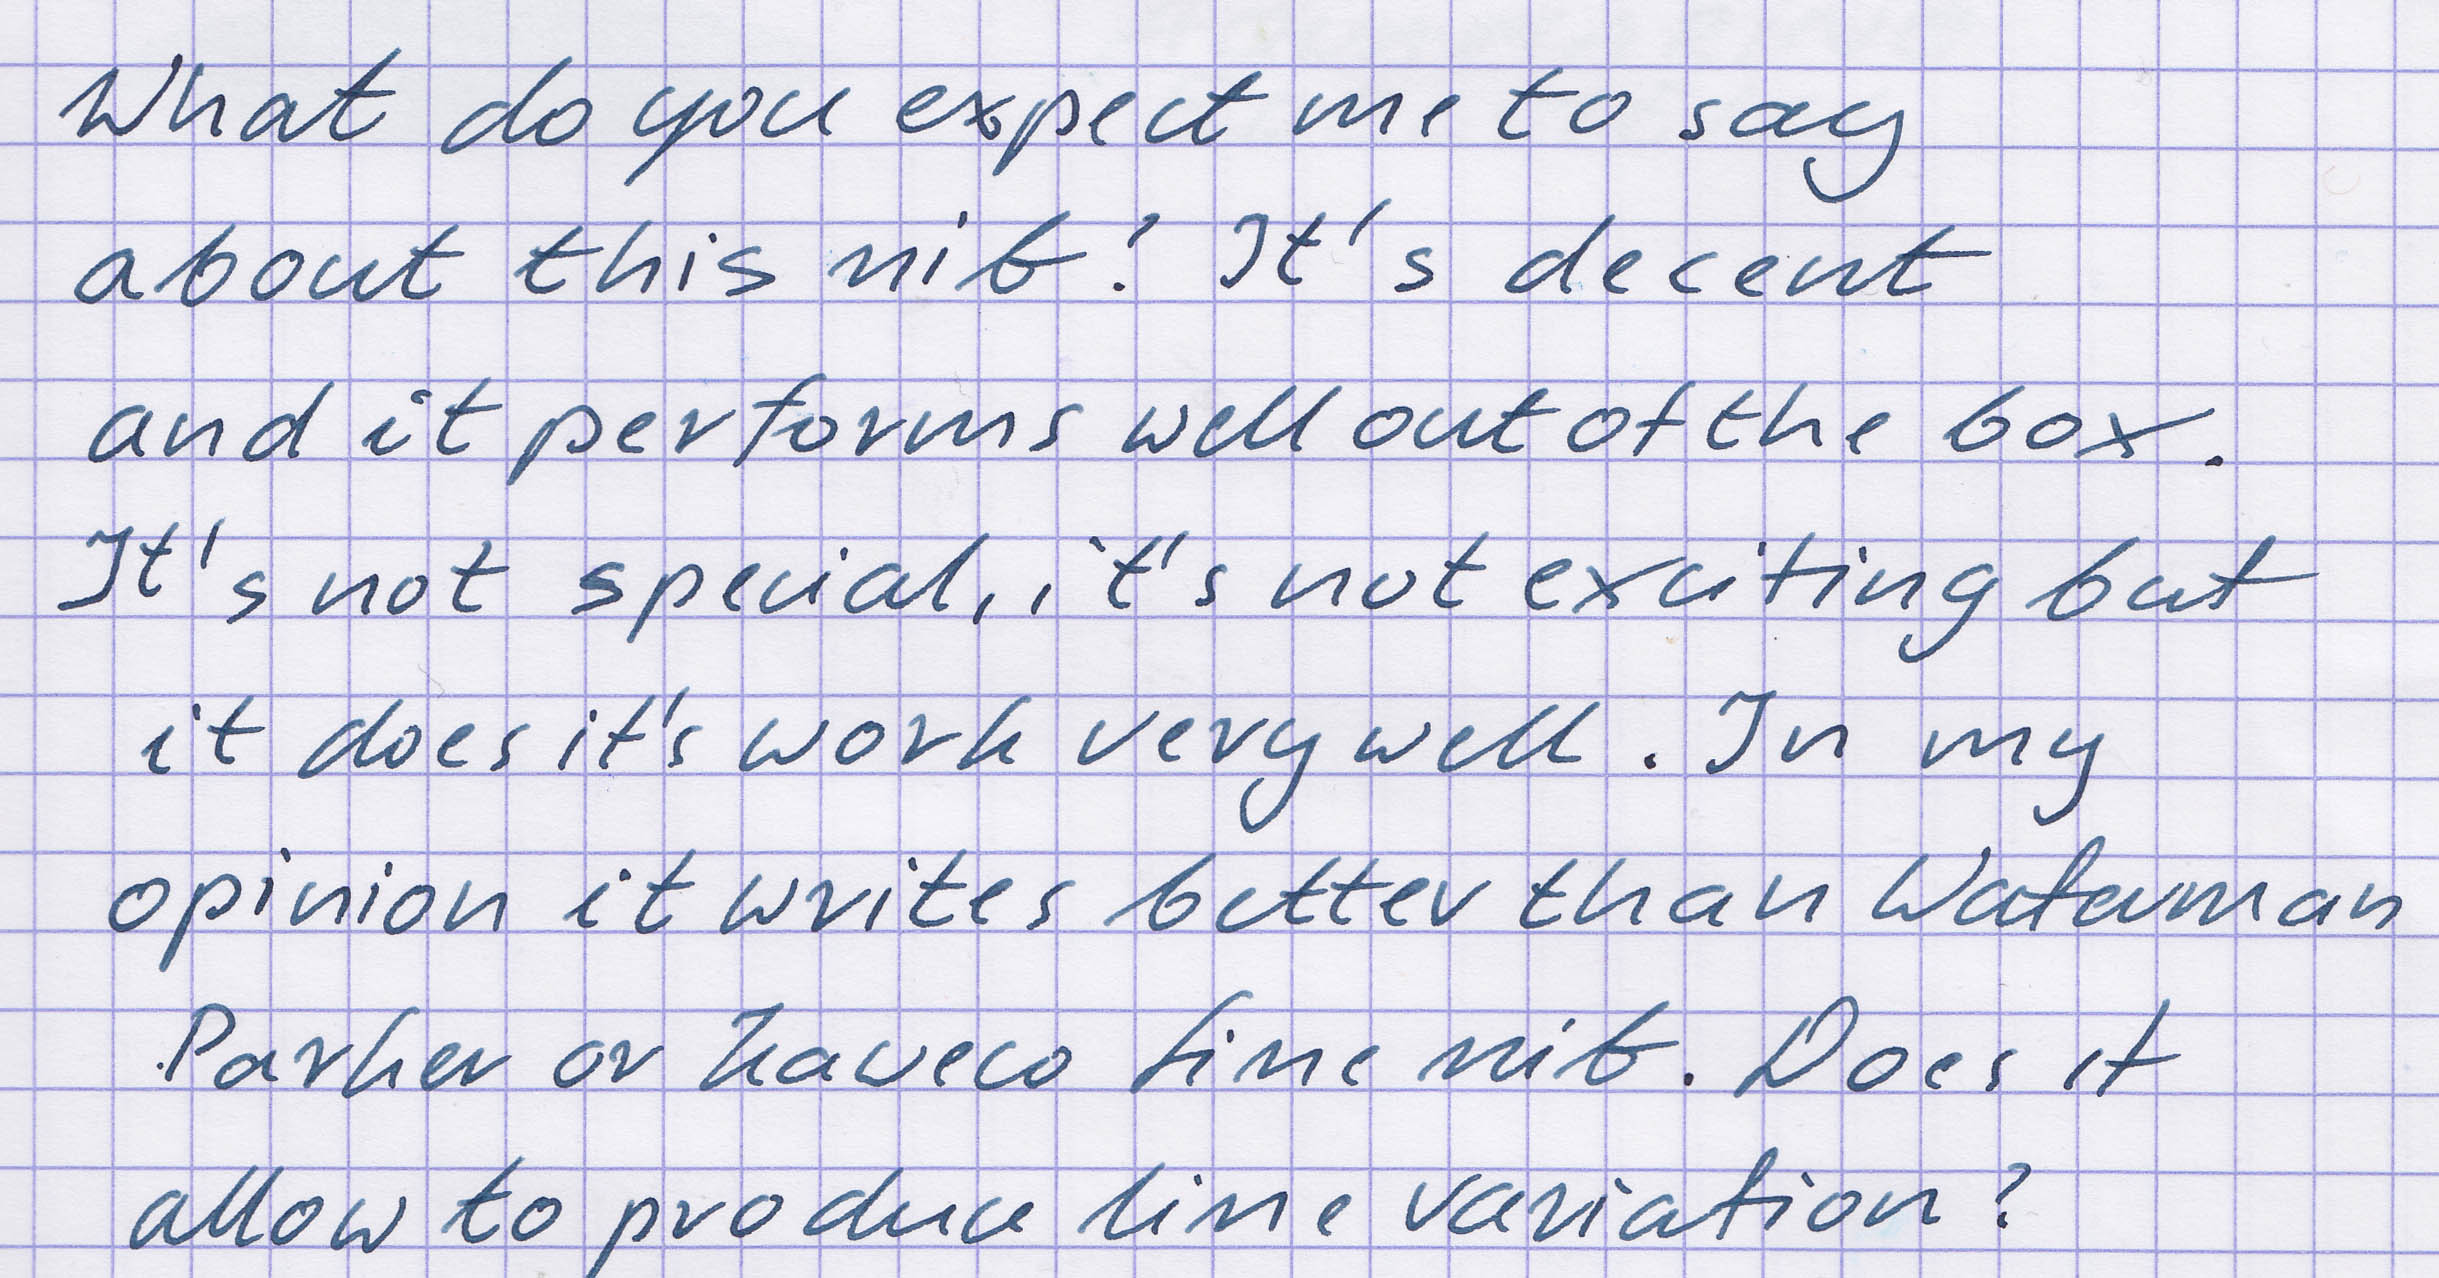 What do you expect me to say
about this nib? It's decent
and it performs well out of the box.
It's not special, it's not exciting but
it does it's work very well. In my
opinion it writes better than Waterman
Parker or Kaweco fine nib. Does it
allow to produce line variation?